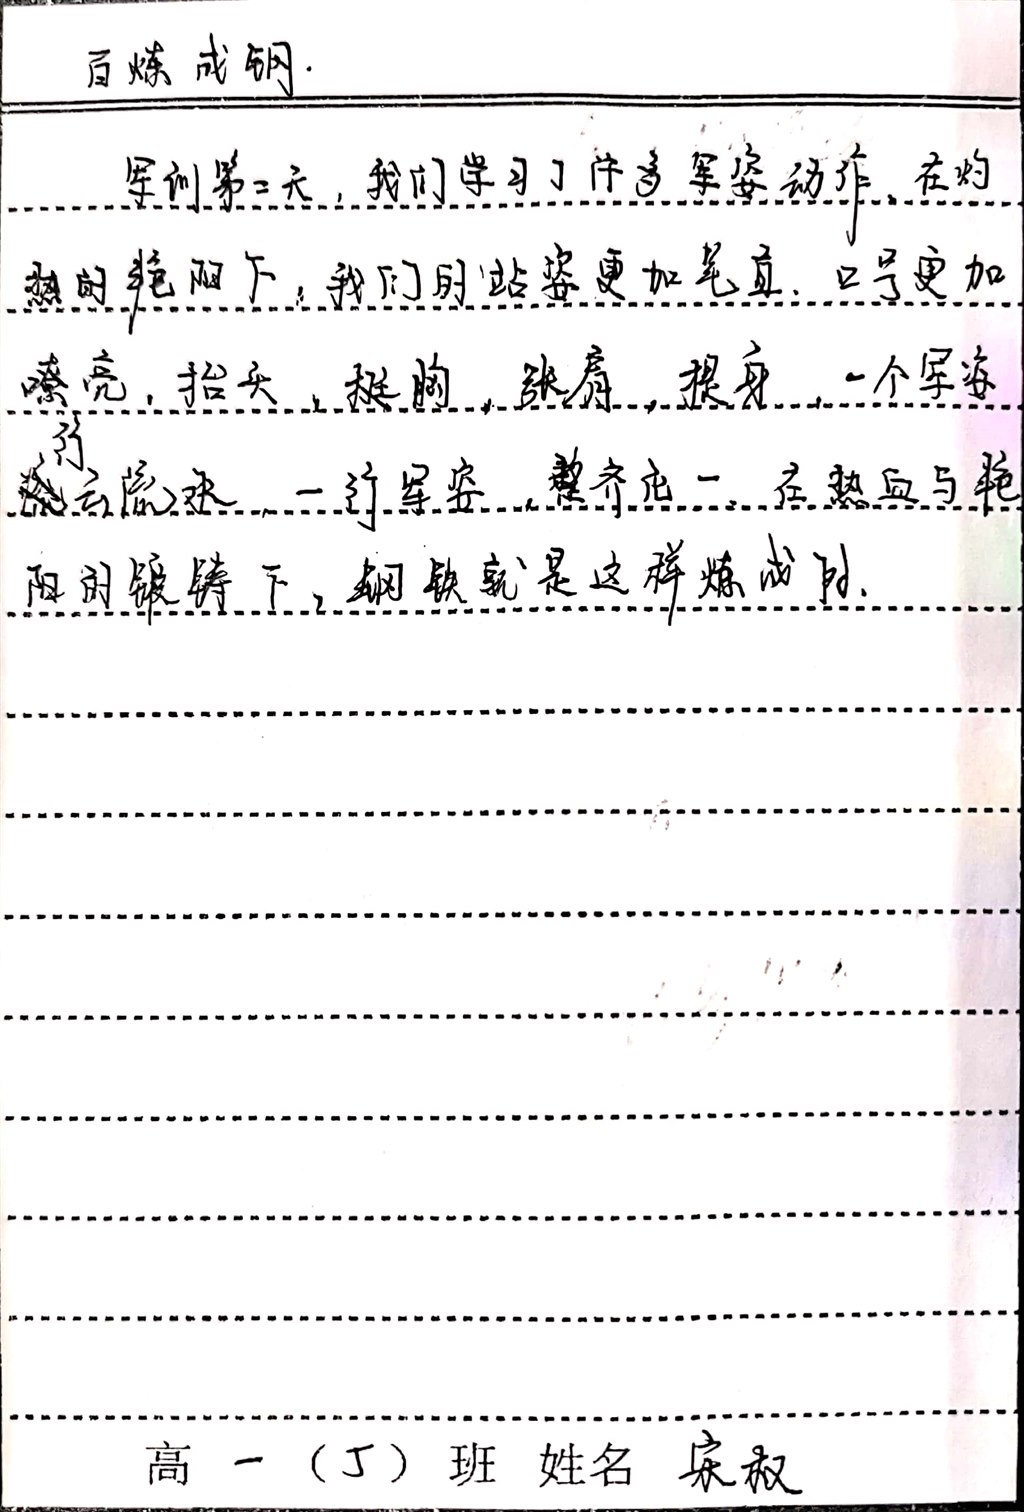 百炼成钢.
军训第二天,我们学习了许多军姿动作。在灼
热的艳阳下,我们的站姿更加笔直、口号更加
嘹亮,抬头,挺胸,张肩,提身,一个军姿
行云流水,一行军姿,整齐化一。在热血与艳
阳的锻铸下,钢铁就是这样炼成的.
高一(5)班 姓名 宋